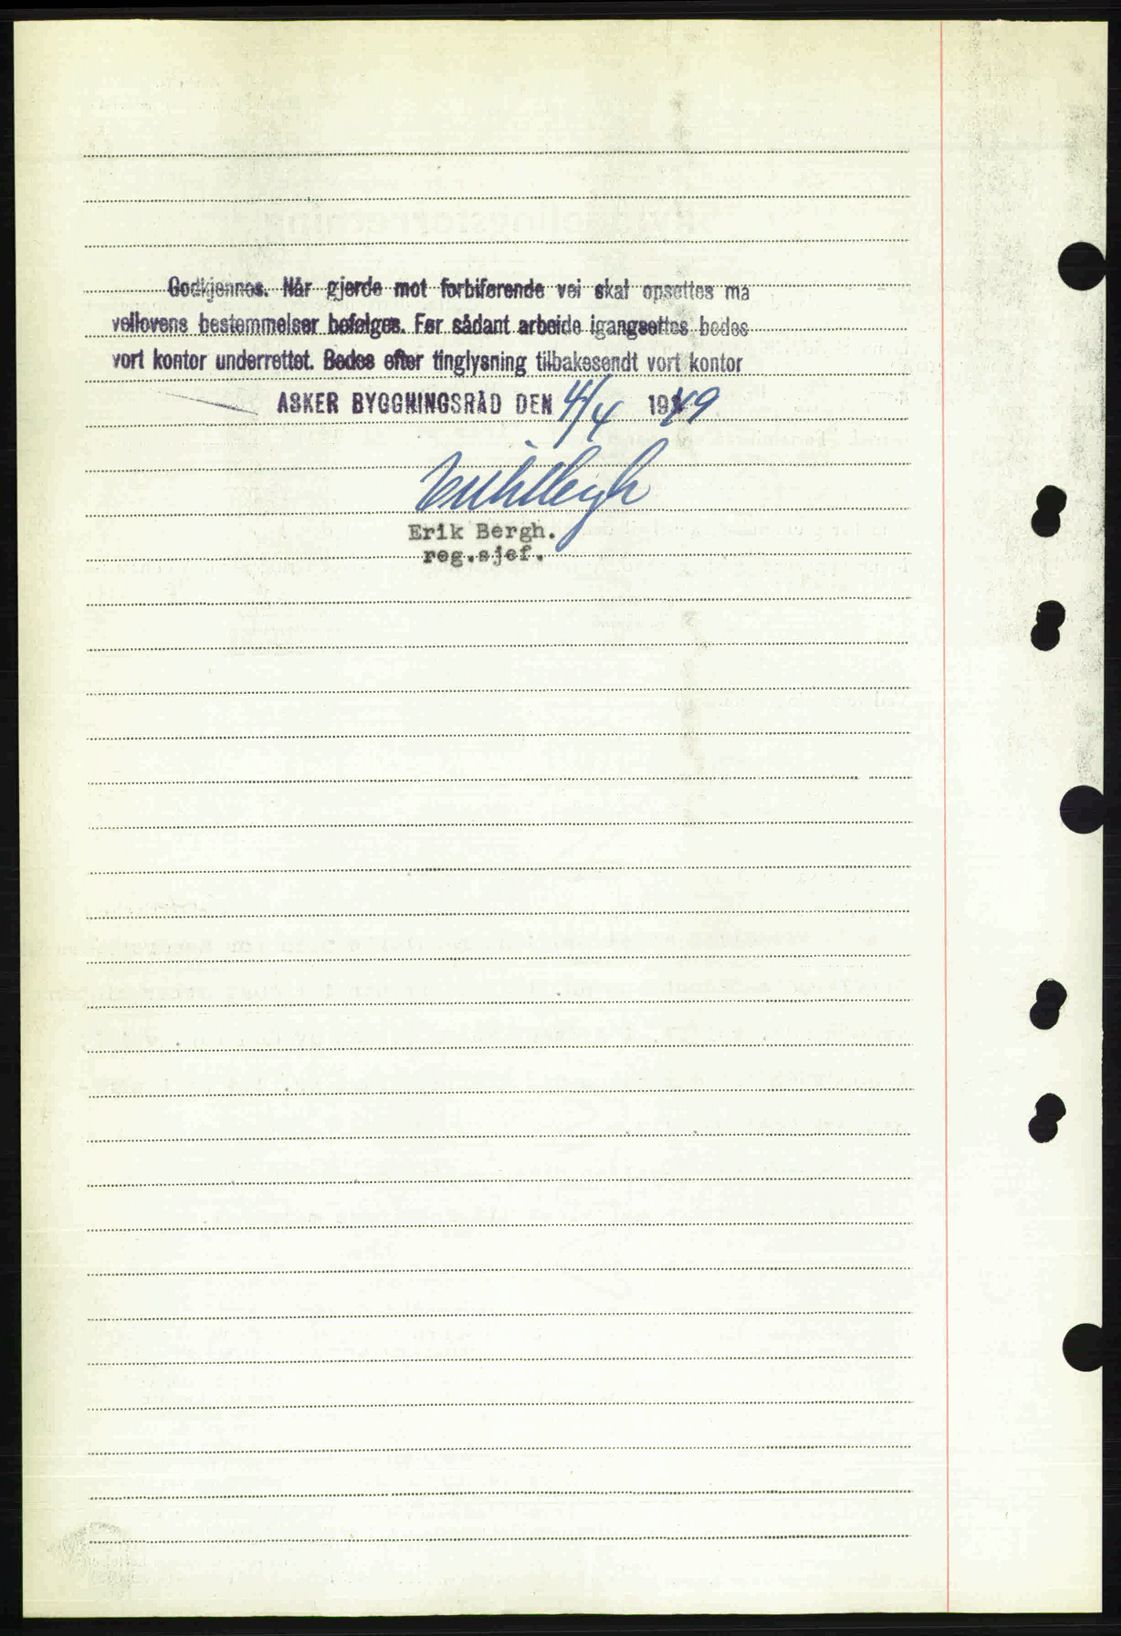 Godkjennes. Når gjerde mot forbiførende vei skal opsettes må
veilovens bestemmelser befølges. Før sådant arbeide igangsettes bedes
vort kontor underrettet. Bedes efter tinglysning tilbakesendt vort kontor
ASKER BYGGNINGSRÅD DEN 4/4 1949
Erik Bergh
Erik Bergh.
reg.sjef.